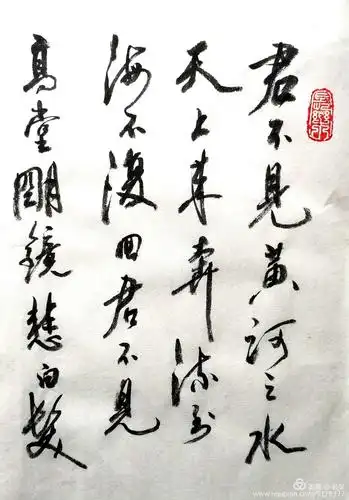 君不见黄河之水
天上来奔流到
海不復回君不见
高堂明镜悲白髮